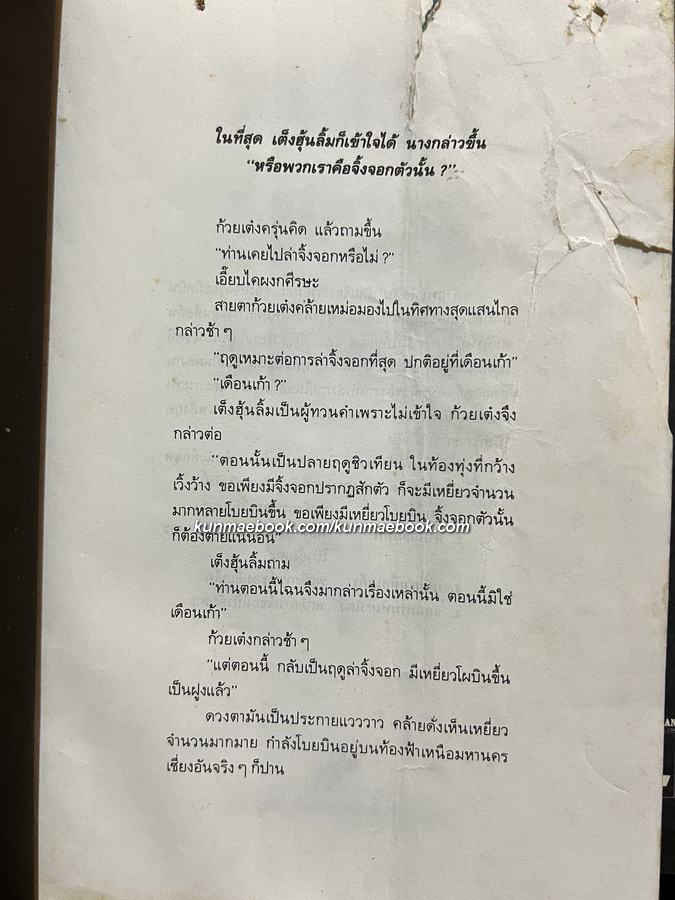 ในที่สุด เต็งฮุ้นลิ้มก็เข้าใจได้ นางกล่าวขึ้น
"หรือพวกเราคือจิ้งจอกตัวนั้น ?"
ก้วยเต๋งครุ่นคิด แล้วถามขึ้น
"ท่านเคยไปล่าจิ้งจอกหรือไม่ ?"
เอี๊ยบไคผงกศีรษะ
สายตาก้วยเต๋งคล้ายเหม่อมองไปในทิศทางสุดแสนไกล
กล่าวช้า ๆ
"ฤดูเหมาะต่อการล่าจิ้งจอกที่สุด ปกติอยู่ที่เดือนเก้า"
"เดือนเก้า ?"
เต็งฮุ้นลิ้มเป็นผู้ทวนคำเพราะไม่เข้าใจ ก้วยเต๋งจึง
กล่าวต่อ
"ตอนนั้นเป็นปลายฤดูชิวเทียน ในท้องทุ่งที่กว้าง
เวิ้งว้าง ขอเพียงมีจิ้งจอกปรากฏสักตัว ก็จะมีเหยี่ยวจำนวน
มากหลายโบยบินขึ้น ขอเพียงมีเหยี่ยวโบยบิน จิ้งจอกตัวนั้น
kunmaebook.com/kunmaebook.com
ก็ต้องตายแน่นอน"
เต็งฮุ้นลิ้มถาม
"ท่านตอนนี้ไฉนจึงมากล่าวเรื่องเหล่านั้น ตอนนี้มิใช่
เดือนเก้า"
ก้วยเต๋งกล่าวช้า ๆ
"แต่ตอนนี้ กลับเป็นฤดูล่าจิ้งจอก มีเหยี่ยวโผบินขึ้น
เป็นฝูงแล้ว"
ดวงตามันเป็นประกายแวววาว คล้ายดั่งเห็นเหยี่ยว
จำนวนมากมาย กำลังโบยบินอยู่บนท้องฟ้าเหนือมหานคร
เชี่ยงอันจริง ๆ ก็ปาน